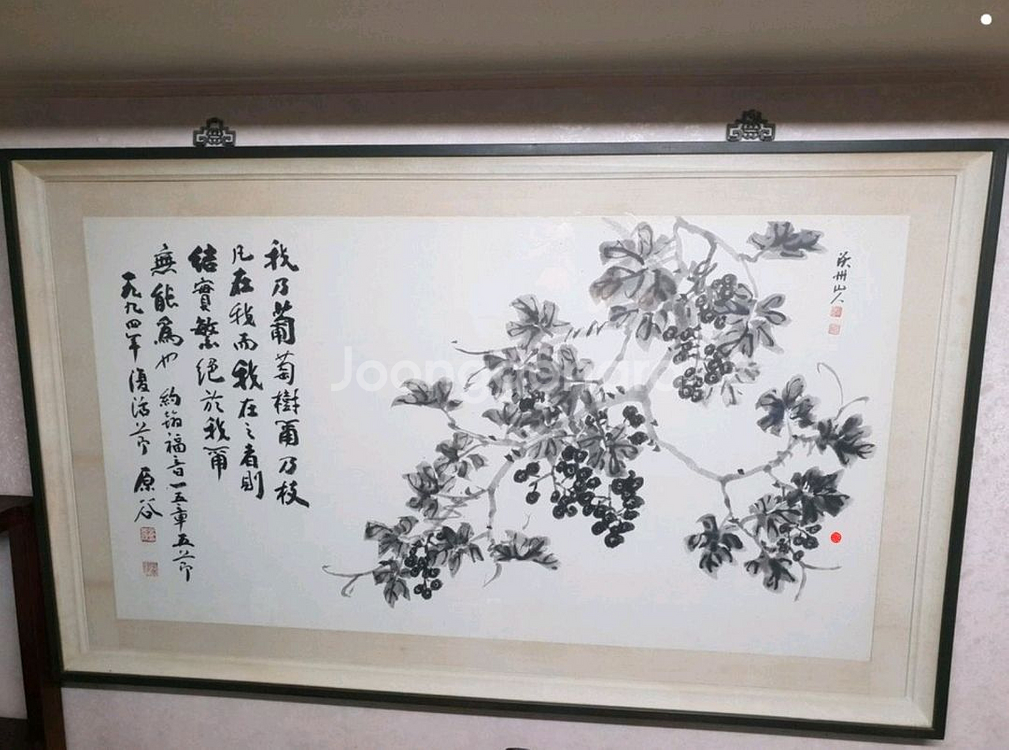 州山人
我乃葡萄樹爾乃枝
凡在我而我在之者則
結實繁絕於我爾
無能爲也 約翰福音一五章五節
一九九四年 復活節 原谷